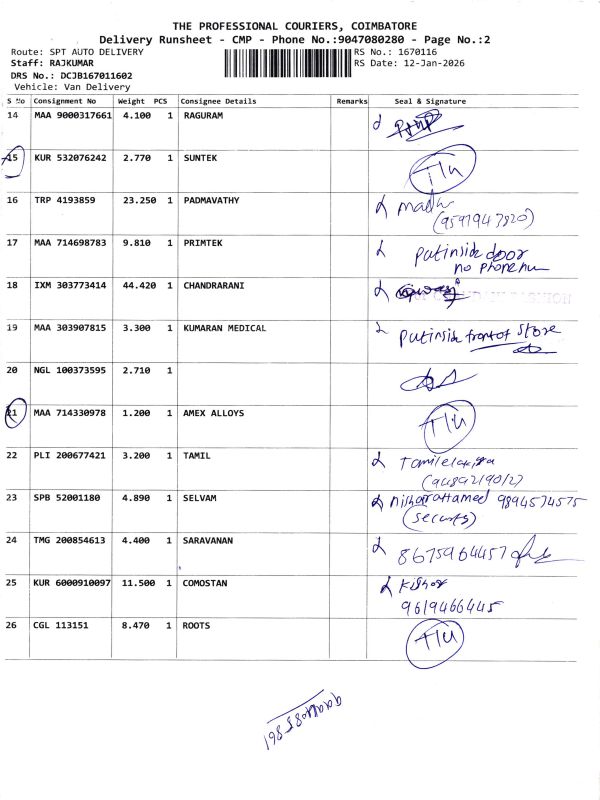 THE PROFESSIONAL COURIERS, COIMBATORE
Delivery Runsheet - CMP - Phone No.:9047080280 - Page No.:2
Route: SPT AUTO DELIVERY RS No.: 1670116
Staff: RAJKUMAR RS Date: 12-Jan-2026
DRS No.: DCJB167011602
Vehicle: Van Delivery
S No Consignment No Weight PCS Consignee Details Remarks Seal & Signature
14 MAA 9000317661 4.100 1 RAGURAM
15 KUR 532076242 2.770 1 SUNTEK T/u
16 TRP 4193859 23.250 1 PADMAVATHY madhu
(9597947820)
17 MAA 714698783 9.810 1 PRIMTEK put inside door
no phone nu
18 IXM 303773414 44.420 1 CHANDRARANI
19 MAA 303907815 3.300 1 KUMARAN MEDICAL put inside front of store
20 NGL 100373595 2.710 1
21 MAA 714330978 1.200 1 AMEX ALLOYS T/u
22 PLI 200677421 3.200 1 TAMIL
23 SPB 52001180 4.890 1 SELVAM 9894574575
(security)
24 TMG 200854613 4.400 1 SARAVANAN 8675964457
25 KUR 6000910097 11.500 1 COMOSTAN Kishor
9619466445
26 CGL 113151 8.470 1 ROOTS T/u